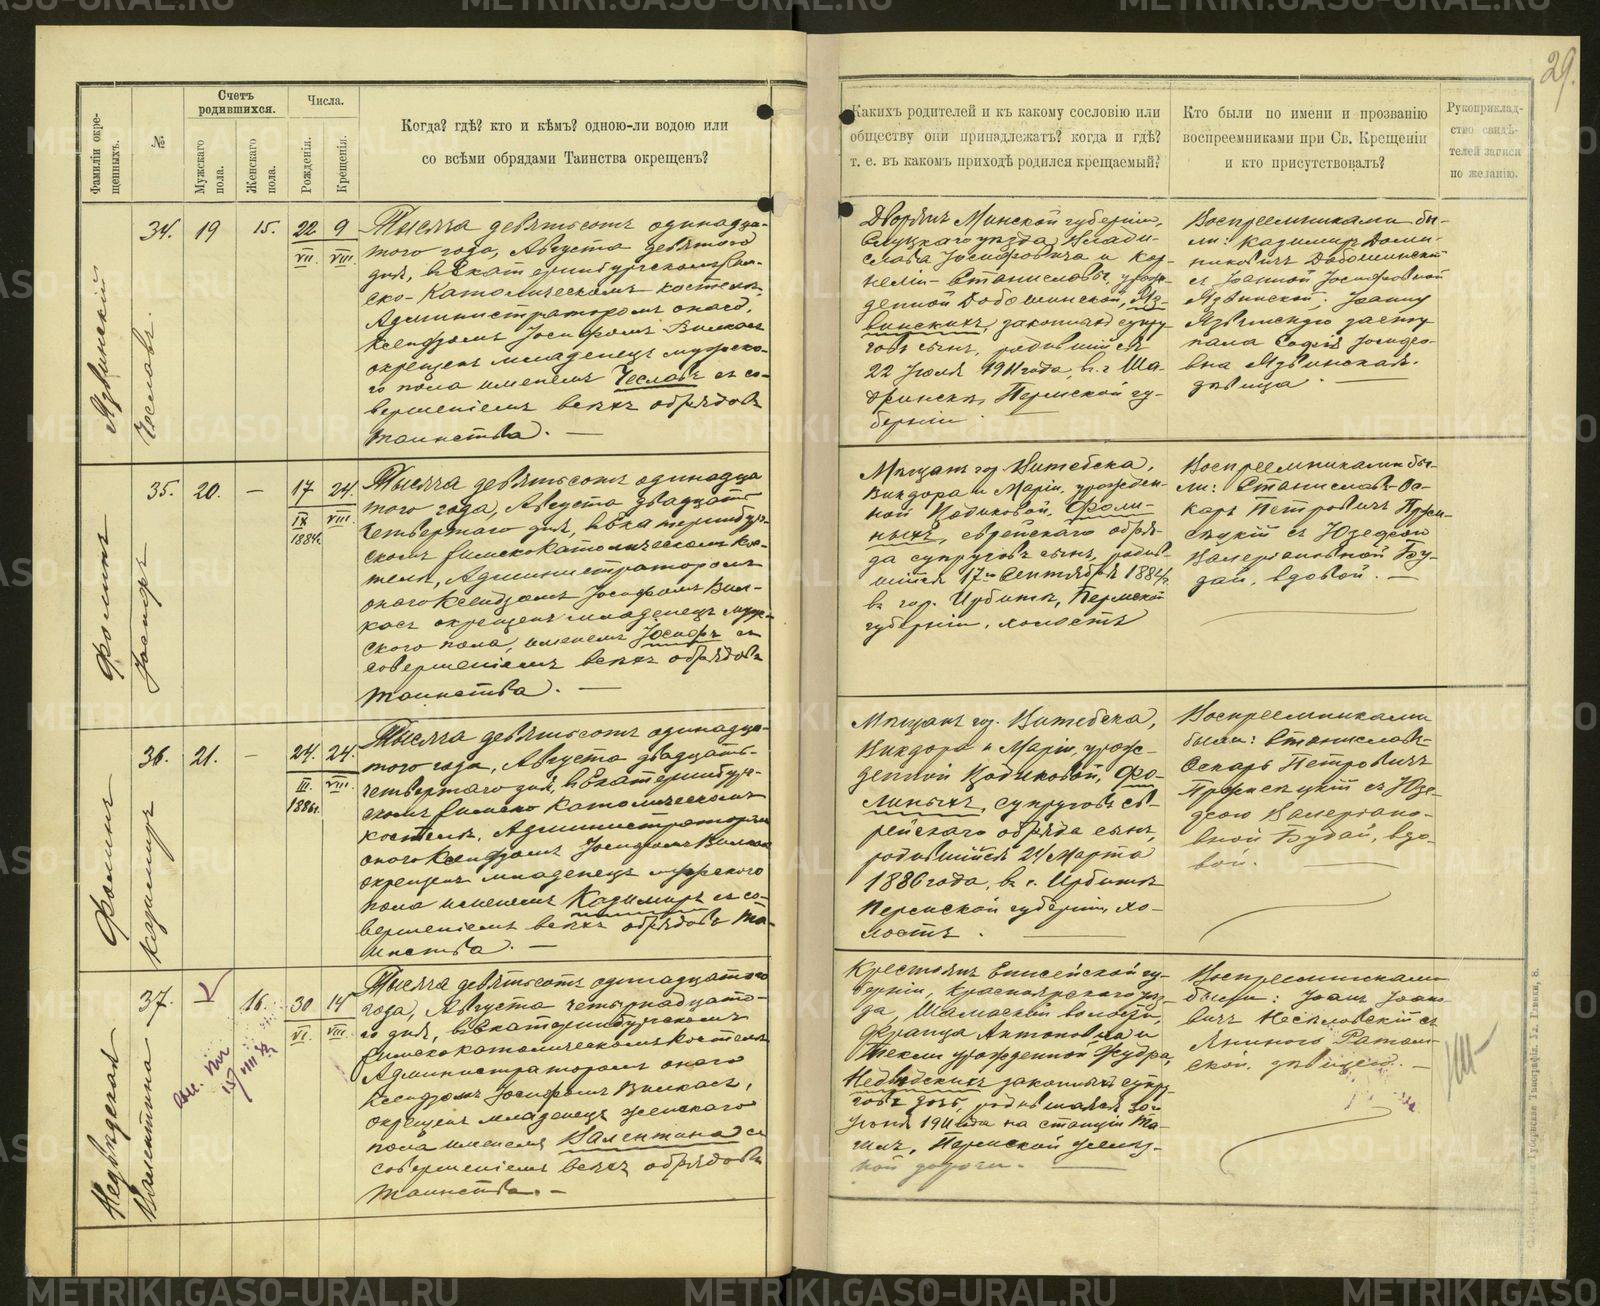 METRIKI.GASO-URAL.RU
29.
Фамиліи окрещенныхъ.
№
Счетъ родившихся.
Мужскаго пола.
Женскаго пола.
Числа.
Рожденія.
Крещенія.
Когда? гдѣ? кто и кѣмъ? одною-ли водою или
со всѣми обрядами Таинства окрещенъ?
Какихъ родителей и къ какому сословію или
обществу они принадлежатъ? когда и гдѣ?
т. е. въ какомъ приходѣ родился крещаемый?
Кто были по имени и прозванію
воспреемниками при Св. Крещеніи
и кто присутствовалъ?
Рукоприклад-
ство свидѣ-
телей записи
по желанію.
Язвинскій
Чеславъ.
34. 19 15. 22 VII. 9 VIII.
Тысяча девятьсотъ одинадца-
того года, Августа девятого
дня, въ Екатеринбургскомъ Рим-
ско-Католическомъ костелѣ,
Администраторомъ онаго,
Ксендзомъ Іосифомъ Вилкасъ
окрещенъ младенецъ мужско-
го пола именемъ Чеславъ съ со-
вершеніемъ всѣхъ обрядовъ
таинства. —
Дворянъ Минской губерніи,
Слуцкаго уѣзда, Влади-
слава Іосифовича и Кор-
неліи-Станиславы, урож-
денной Добошинской, Яз-
винскихъ, законныхъ супру-
говъ сынъ, родившійся
22 Іюля 1911 года, въ г. Ша-
дринскѣ, Пермской гу-
берніи
Воспреемниками бы-
ли: Казимиръ Доми-
никовичъ Добошинскій
съ Іоанной Іосифовной
Язвинской; Іоанну
Язвинскую засту-
пала Софія Іосифо-
вна Язвинская,
дѣвица. —
Фоминъ
Іосифъ
35. 20. — 17 IX 1884. 24. VIII.
Тысяча девятьсотъ одинадца
того года, Августа двадцать
четвертаго дня, въ Екатеринбур-
скомъ Римско Католическомъ кос-
телѣ, Администраторомъ
онаго Ксендзомъ Іосифомъ Вил-
касъ окрещенъ младенецъ муж-
ского пола, именемъ Іосифъ съ
совершеніемъ всѣхъ обрядовъ
таинства. —
Мѣщанъ гор. Витебска,
Виктора и Маріи, урожден-
ной Цодиковой, Фоми-
ныхъ, еврейскаго обря-
да супруговъ сынъ, родив-
шійся 17го Сентября 1884 г.
въ гор. Ирбитѣ, Пермской
губерніи, холостъ
Воспреемниками бы-
ли: Станиславъ-Ос-
каръ Петровичъ
съ Юзефою
Валеріановной Бу-
дай, вдовой. —
Фоминъ
Казимиръ
36. 21. — 24. III. 1886. 24. VIII.
Тысяча девятьсотъ одинадца-
того года, Августа двадцать-
четвертаго дня, въ Екатеринбур-
скомъ Римско Католическомъ
костелѣ, Администраторомъ
онаго Ксендзомъ Іосифомъ Вилкасъ
окрещенъ младенецъ мужского
пола именемъ Казимиръ съ со-
вершеніемъ всѣхъ обрядовъ та-
инства. —
Мѣщанъ гор. Витебска,
Виктора и Маріи, урож-
денной Цодиковой, Фо-
миныхъ, супруговъ ев-
рейскаго обряда сынъ,
родившійся 24 Марта
1886 года, въ г. Ирбитѣ
Пермской губерніи, хо-
лостъ.
Воспреемниками
были: Станиславъ-
Оскаръ Петровичъ
съ Юзе-
фою Валеріано-
вной Будай, вдо-
вой. —
Недведская
Валентина
37. — 16. 30 VI. 14 VIII.
Тысяча девятьсотъ одинадцатого
года, Августа четырнадцато-
го дня, въ Екатеринбургскомъ
Римско католическомъ костелѣ
Администраторомъ онаго
Ксендзомъ Іосифомъ Вилкасъ,
окрещенъ младенецъ женскаго
пола именемъ Валентина съ
совершеніемъ всѣхъ обрядовъ
таинства. —
Крестьянъ Енисейской гу-
берніи, Красноярскаго уѣз-
да, волости,
Франца Антоновича и
Теклы урожденной
Недведскихъ законныхъ супру-
говъ дочь, родившаяся 30го
Іюня 1911 года на станціи Та-
гилъ, Пермской желѣз-
ной дороги. —
Воспреемниками
были: Іоанъ Іоано-
вичъ съ
Яниною
ской, дѣвицею. —